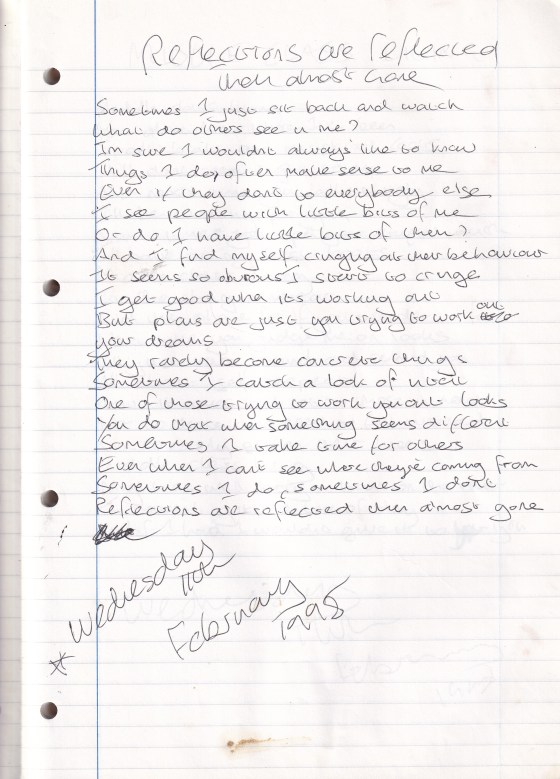 Reflections are reflected
then almost gone
Sometimes I just sit back and watch
What do others see in me?
I'm sure I wouldn't always like to know
Things I do, often make sense to me
Even if they don't to everybody else
I see people with little bits of me
Or do I have little bits of them?
And I find myself cringing at their behaviour
It seems so obvious I start to cringe
I get good when its working out
But plans are just you trying to work out
your dreams
They rarely become concrete things
Sometimes I catch a look of
One of those trying to work you out looks
You do that when something seems different
Sometimes I take time for others
Even when I can't see where they're coming from
Sometimes I do, sometimes I don't
Reflections are reflected then almost gone
Wednesday
11th
February
1998